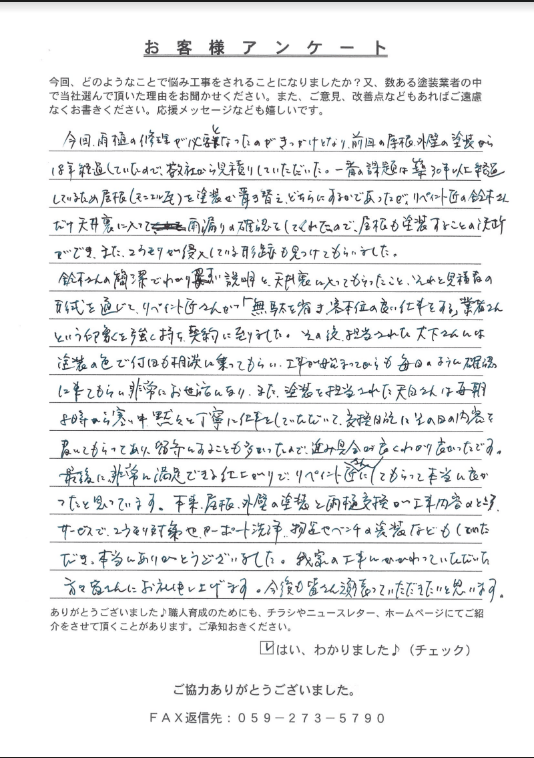 お客様アンケート
今回、どのようなことで悩み工事をされることになりましたか？又、数ある塗装業者の中
で当社選んで頂いた理由をお聞かせください。また、ご意見、改善点などもあればご遠慮
なくお書きください。応援メッセージなども嬉しいです。
今回、雨樋の修理が必要となったのがきっかけとなり、前回の屋根、外壁の塗装から
18年経過していたので、数社から見積りしていただいた。一番の課題は築30年以上経過
しているため屋根(モニエル瓦)を塗装か葺き替え、どちらにするかであったが、リペイント匠の鈴木さん
だけ天井裏に入って雨漏りの確認をしてくれたので、屋根も塗装することの決断
ができ、また、コウモリが侵入している形跡も見つけてもらいました。
鈴木さんの簡潔でわかり易い説明と、天井裏に入ってもらったこと、それと見積書の
形式を通じて、リペイント匠さんが「無駄を省き、客本位の良い仕事をする」業者さん
という印象を強く持ち、契約に至りました。その後、担当された大下さんには
塗装の色で何回も相談に乗ってもらい、工事が始まってからも毎日のように確認
に来てもらい非常にお世話になり、また、塗装を担当された さんは毎朝
8時から寒い中黙々と丁寧に仕事をしていただいて、交換日記にその日の内容を
書いてもらってあり、留守にすることも多かったので、進み具合が良くわかり良かったです。
最後に、非常に満足できる仕上がりで、リペイント匠さんにしてもらって本当に良か
ったと思っています。本来、屋根、外壁の塗装と雨樋交換が工事内容のところ、
サービスで、コウモリ対策や、カーポート洗浄、物置やベンチの塗装などもしていた
だき、本当にありがとうございました。我家の工事にかかわっていただいた
方々皆さんにお礼申し上げます。今後も皆さん頑張っていただきたいと思います。
ありがとうございました♪職人育成のためにも、チラシやニュースレター、ホームページにてご紹
介をさせて頂くことがあります。ご承知おきください。
はい、わかりました♪（チェック）
ご協力ありがとうございました。
ＦＡＸ返信先：０５９－２７３－５７９０